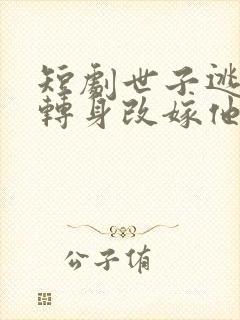 短劇世子逃
轉身改嫁他
公子侑